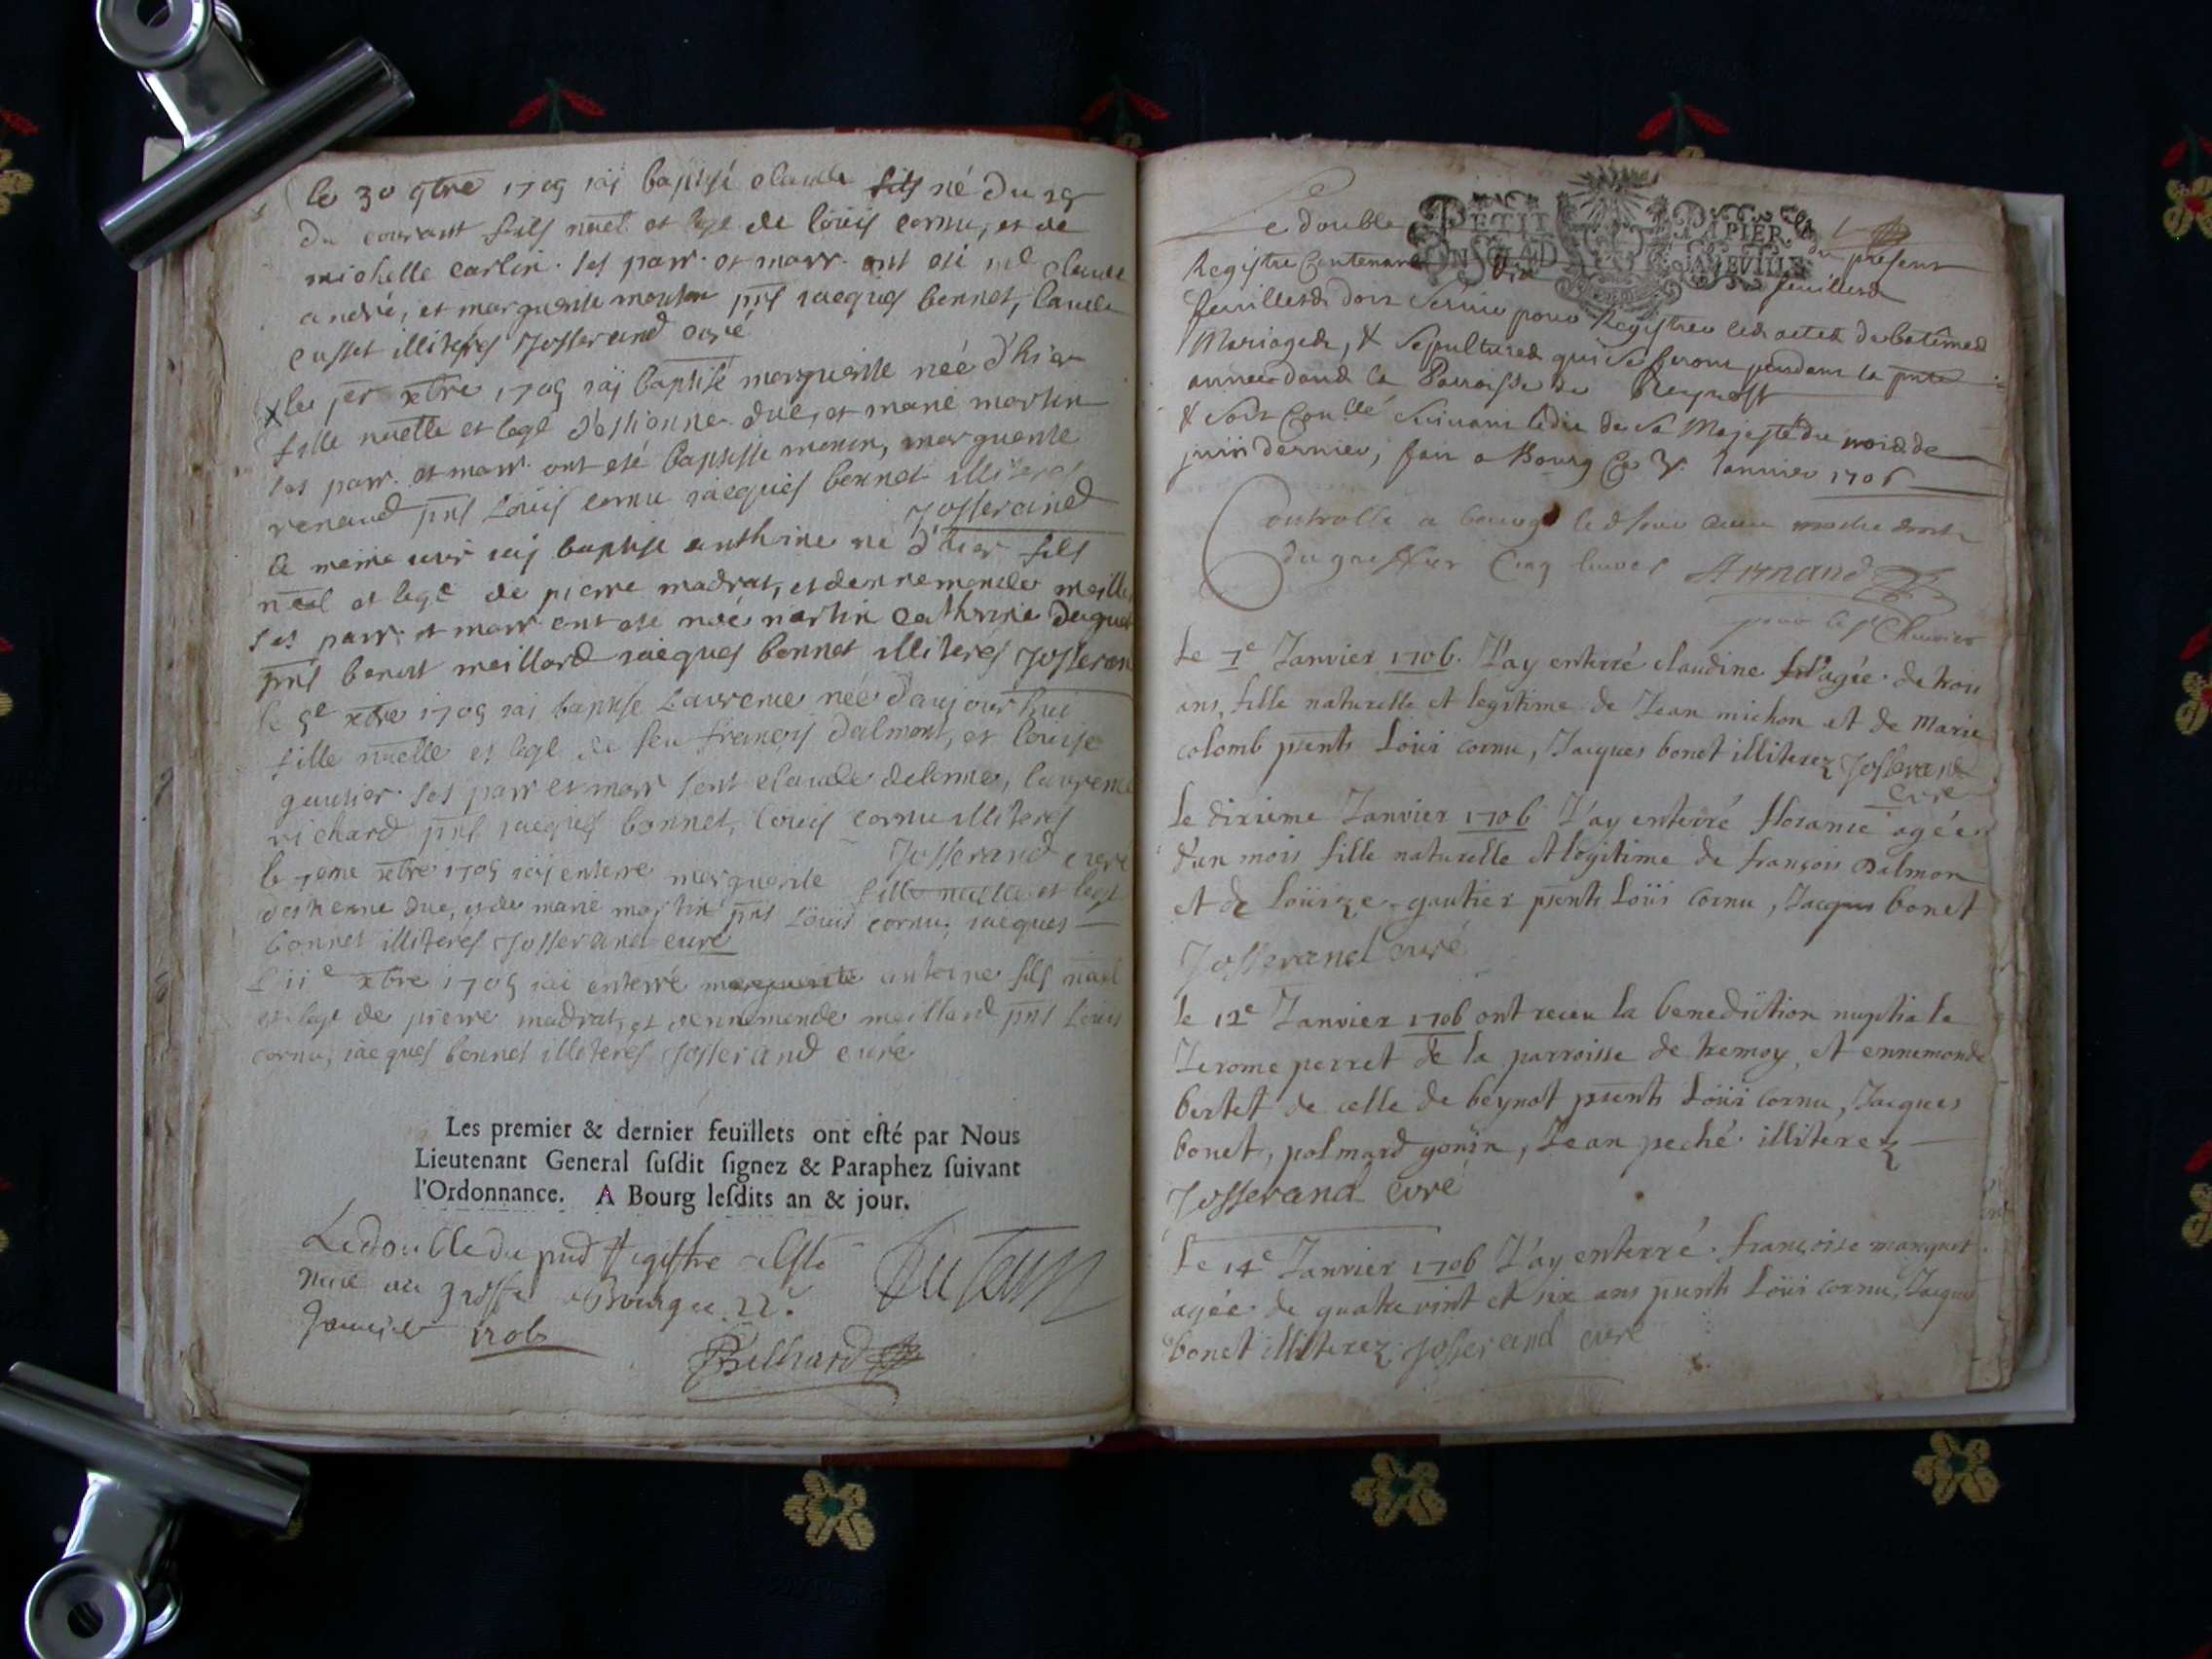 le 30 9bre 1705 iai baptisé claude fils né du 28
du courant fils nāel et lege de loüis cornu, et de
michelle carlin. ses parr. et marr. ont esté claude
andré, et marguerite mouton pn̄s iacques bonnet, claude
cusset illiterés Josserand curé
X le jer xbre 1705 iai baptisé marguerite née d'hier
fille nāelle et lege d'estienne duc, et marie martin
ses parr. et marr. ont esté baptiste monin, marguerite
renaud pn̄s Loüis cornu iacques bonnet illiterés
Josserand
le meme iour iaij baptisé anthoine né d'hier fils
nāel et lege de pierre madrat, et d'ennemonde meillard
ses parr. et marr. ont esté noé martin catherine
pn̄s benoist meillard iacques bonnet illiterés Josserand
le 5e xbre 1705 iai baptisé Laurence née d'aujourhui
fille nāelle et lege de feu françois dalmont, et louise
gautier. ses parr et marr sont claude delorme, laurence
richard pn̄s iacques bonnet, loüis cornu illiterés
Josserand curé
le 7eme xbre 1705 iai enterré marguerite fille nāelle et lege
d'estienne duc, et de marie martin pn̄s Loüis cornu, iacques
bonnet illiterés Josserand curé
L'11e xbre 1705 iai enterré marguerite antoine fils nāel
et lege de pierre madrat, et d'ennemonde meillard pn̄s Loüis
cornu, iacques bonnet illiterés Josserand curé
Les premier & dernier feuillets ont esté par Nous
Lieutenant General susdit signez & Paraphez suivant
l'Ordonnance. A Bourg lesdits an & jour.
Le double du pn̄d Registre a esté
mis au greffe a Bourg ce 22e
Janvier 1706
PETIT PAPIER
Le double du present
Registre Contenant feuillets
feuillets doit servir pour Registrer les actes de batêmes
Mariages, & Sepultures qui se feront pendant la pnte
année dans la Parroisse de Beynost
& soit Conllé suivant ledit de Sa Majesté du mois de
juin dernier, fait a Bourg Ce Janvier 1706
Controllé a bourg
du greffier Cinq livres Armand
Le 7e Janvier 1706. J'ay enterré claudine agée de trois
ans, fille naturelle et legitime de Jean michon et de Marie
colomb pn̄ents Loüi cornu, Jacques bonet illiterez Josserand
curé
Le dixieme Janvier 1706 J'ay enterré floranie agée
d'un mois fille naturelle et legitime de françois Dalmon
et de Loüize gautier pn̄ents Loüi cornu, Jacques bonet
Josserand curé
le 12e Janvier 1706 ont receu la benediction nuptiale
Jerome perret de la parroisse de tremoy, et ennemonde
bertet de celle de beynot pn̄ents Loüi cornu, Jacques
bonet, polmard gonin, Jean peché illiterez
Josserand curé
Le 14e Janvier 1706 J'ay enterré françoise manguet
agée de quatre vint et six ans pn̄ents Loüi cornu, Jacques
bonet illiterez Josserand curé